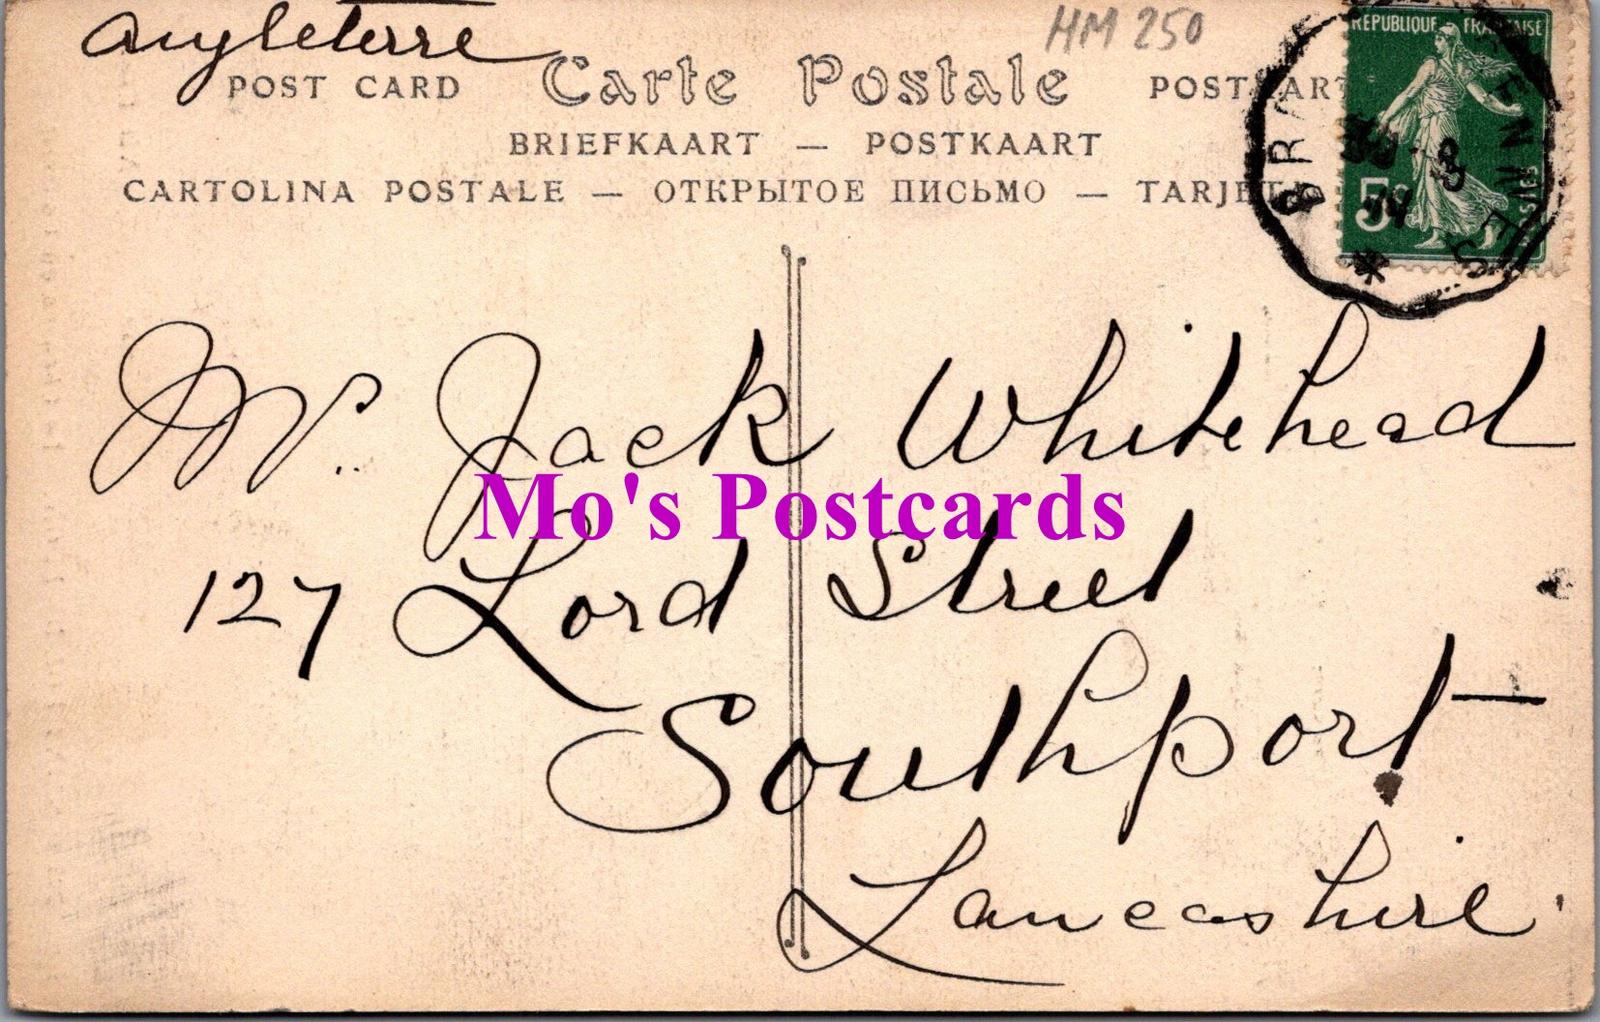 Angleterre
HM 250
POST CARD Carte Postale POSTKARTE
BRIEFKAART — POSTKAART
CARTOLINA POSTALE — ОТКРЫТОЕ ПИСЬМО — TARJETA
REPUBLIQUE FRANÇAISE
5c
Mr. Jack Whitehead
Mo's Postcards
127 Lord Street
Southport
Lancashire